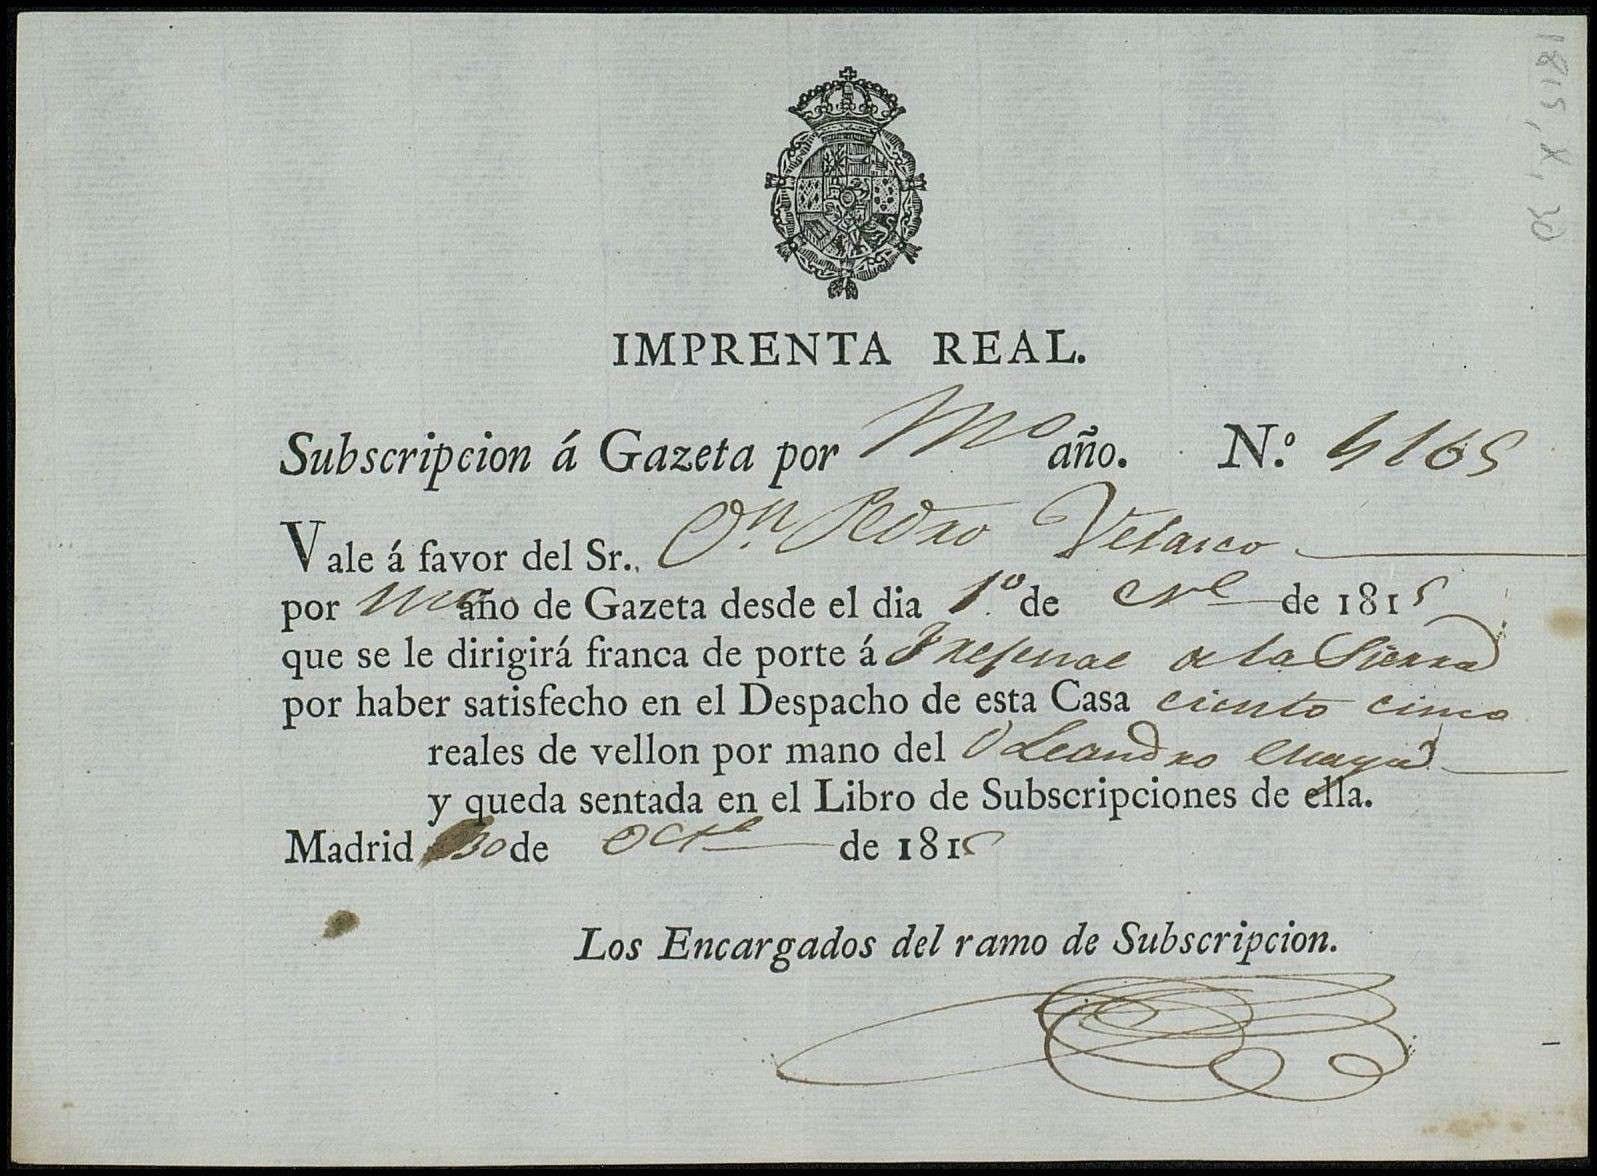 1815, X, 30
IMPRENTA REAL.
Subscripcion á Gazeta por Mo año. N.º 4165
Vale á favor del Sr. Dn Pedro Velasco
por Mo año de Gazeta desde el dia 1.º de de 1815
que se le dirigirá franca de porte á Frexenal de la Sierra
por haber satisfecho en el Despacho de esta Casa ciento cinco
reales de vellon por mano del D Leandro
y queda sentada en el Libro de Subscripciones de ella.
Madrid 30 de Octe de 1815
Los Encargados del ramo de Subscripcion.